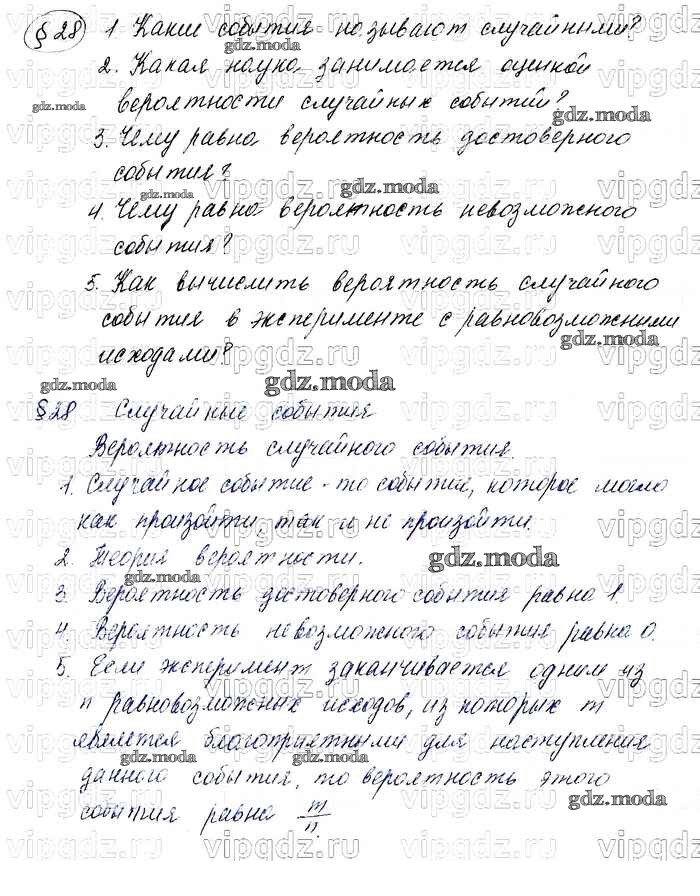 § 28 1. Какие события называют случайными?
2. Какая наука занимается оценкой
вероятности случайных событий?
3. Чему равна вероятность достоверного
события?
4. Чему равна вероятность невозможного
события?
5. Как вычислить вероятность случайного
события в эксперименте с равновозможными
исходами?
§ 28 Случайные события
Вероятность случайного события.
1. Случайное событие - то событие, которое могло
как произойти, так и не произойти.
2. Теория вероятности.
3. Вероятность достоверного события равна 1.
4. Вероятность невозможного события равна 0.
5. Если эксперимент заканчивается одним из
n равновозможных исходов, из которых m
является благоприятными для наступления
данного события, то вероятность этого
события равна m/n.